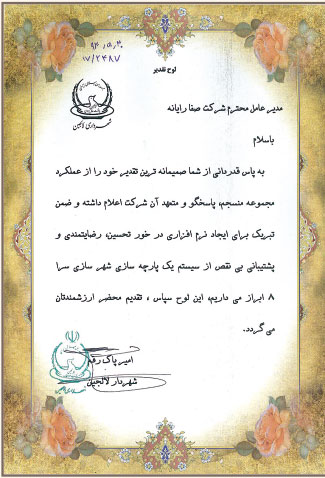 ۹۴،۵،۳۰
۱۷/۲۴۸۷
لوح تقدیر
شهرداری لالجین
مدیر عامل محترم شرکت صفا رایانه
باسلام
به پاس قدردانی از شما صمیمانه ترین تقدیر خود را از عملکرد
مجموعه منسجم، پاسخگو و متعهد آن شرکت اعلام داشته و ضمن
تبریک برای ایجاد نرم افزاری در خور تحسین، رضایتمندی و
پشتیبانی بی نقص از سیستم یک پارچه سازی شهر سازی سرا
۸ ابراز می داریم، این لوح سپاس ، تقدیم محضر ارزشمندتان
می گردد.
امیر پاک رفتار
شهردار لالجین